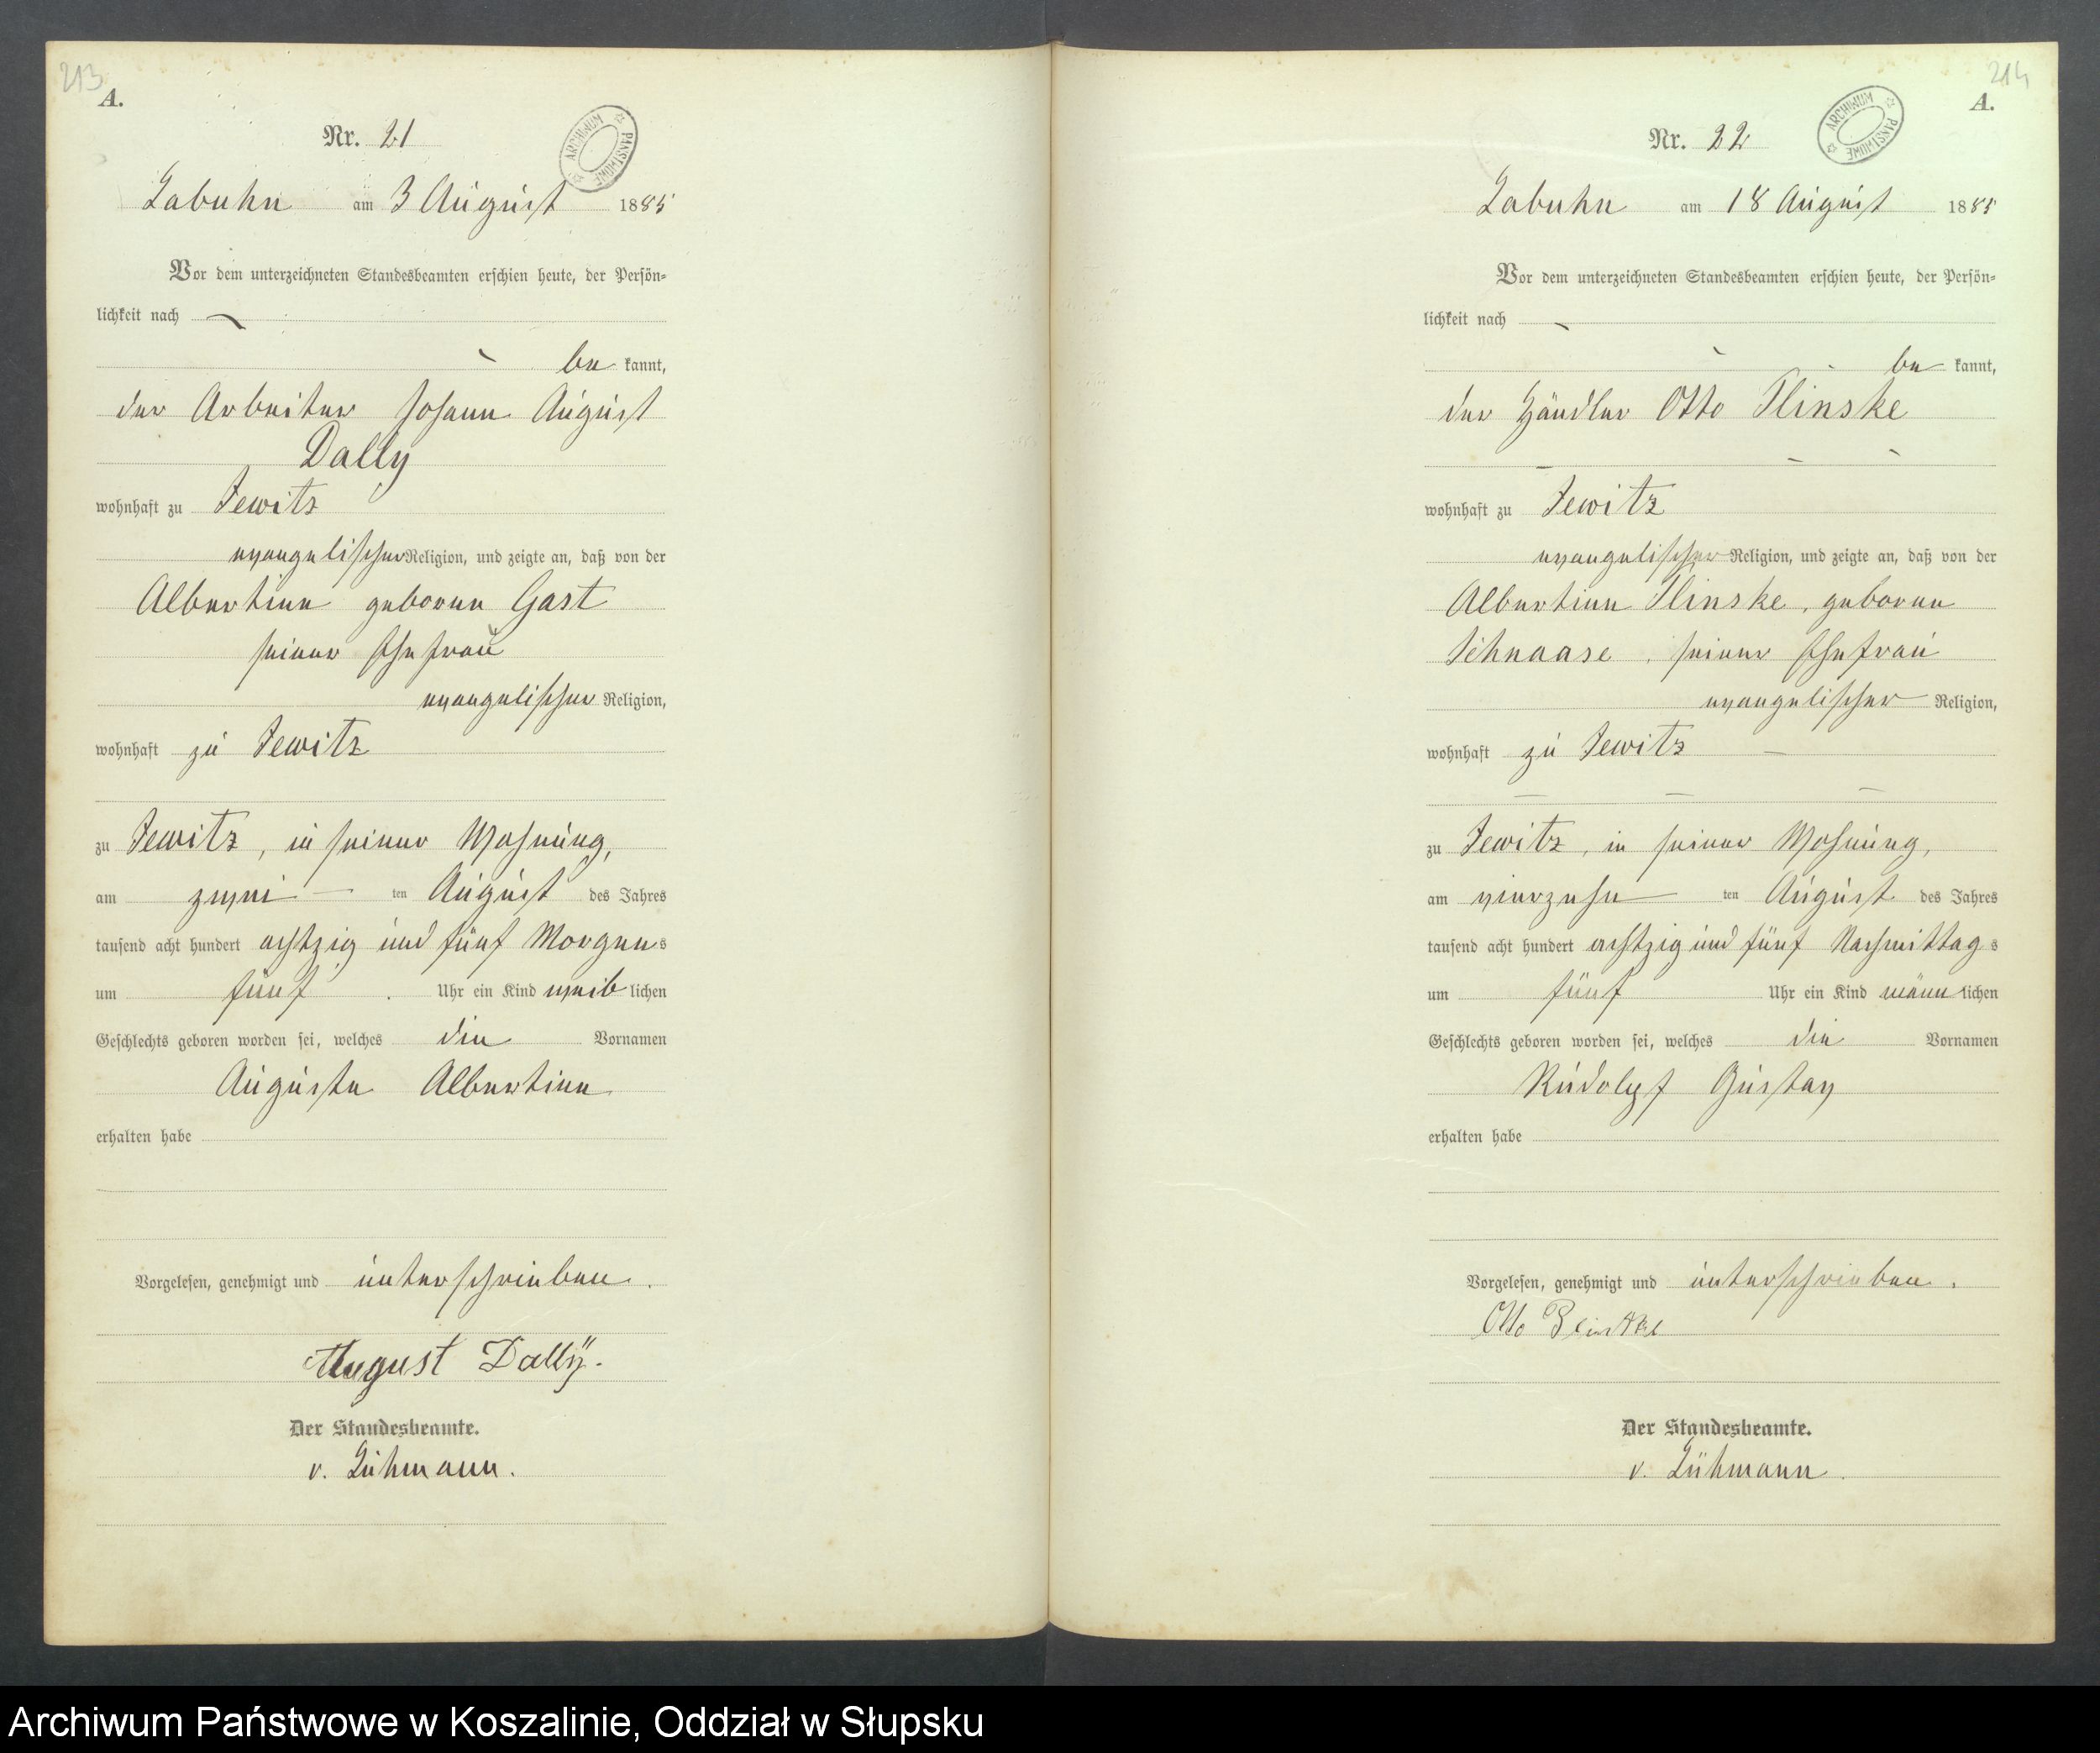 213
A.
ARCHIWUM PAŃSTWOWE
Nr. 21
Labuhn am 3 August 1885
Vor dem unterzeichneten Standesbeamten erschien heute, der Persön-
lichkeit nach
be kannt,
der Arbeiter Johann August
Dally
wohnhaft zu Jewitz
evangelischer Religion, und zeigte an, daß von der
Albertine geborene Gast
seiner Ehefrau
evangelischer Religion,
wohnhaft zu Jewitz
zu Jewitz, in seiner Wohnung,
am zwei ten August des Jahres
tausend acht hundert achtzig und fünf Morgens
um fünf Uhr ein Kind weib lichen
Geschlechts geboren worden sei, welches die Vornamen
Auguste Albertine
erhalten habe
Vorgelesen, genehmigt und unterschrieben.
August Dallÿ.
Der Standesbeamte.
v. Lühmann.
214
A.
ARCHIWUM PAŃSTWOWE
Nr. 22
Labuhn am 18 August 1885
Vor dem unterzeichneten Standesbeamten erschien heute, der Persön-
lichkeit nach
be kannt,
der Händler Otto Plinske
wohnhaft zu Jewitz
evangelischer Religion, und zeigte an, daß von der
Albertine Plinske, geborene
Schnaase, seiner Ehefrau
evangelischer Religion,
wohnhaft zu Jewitz
zu Jewitz, in seiner Wohnung,
am vierzehn ten August des Jahres
tausend acht hundert achtzig und fünf Nachmittags
um fünf Uhr ein Kind männ lichen
Geschlechts geboren worden sei, welches die Vornamen
Rudolpf Gustav
erhalten habe
Vorgelesen, genehmigt und unterschrieben.
Otto Plinske
Der Standesbeamte.
v. Lühmann.
Archiwum Państwowe w Koszalinie, Oddział w Słupsku